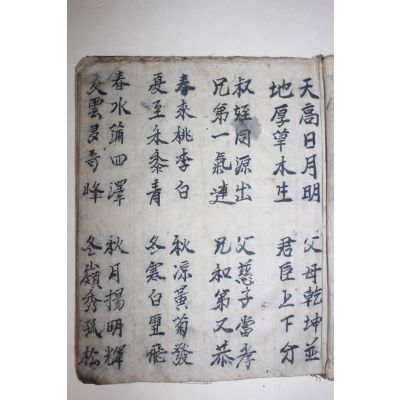 天高日月明
地厚草木生
父母乾坤並
君臣上下分
叔姪同源出
兄第一氣連
父慈子當孝
兄和第又恭
春來桃李白
夏至禾黍青
秋凉黃菊發
冬寒白雪飛
春水滿四澤
夏雲多奇峰
秋月揚明輝
冬嶺秀孤松